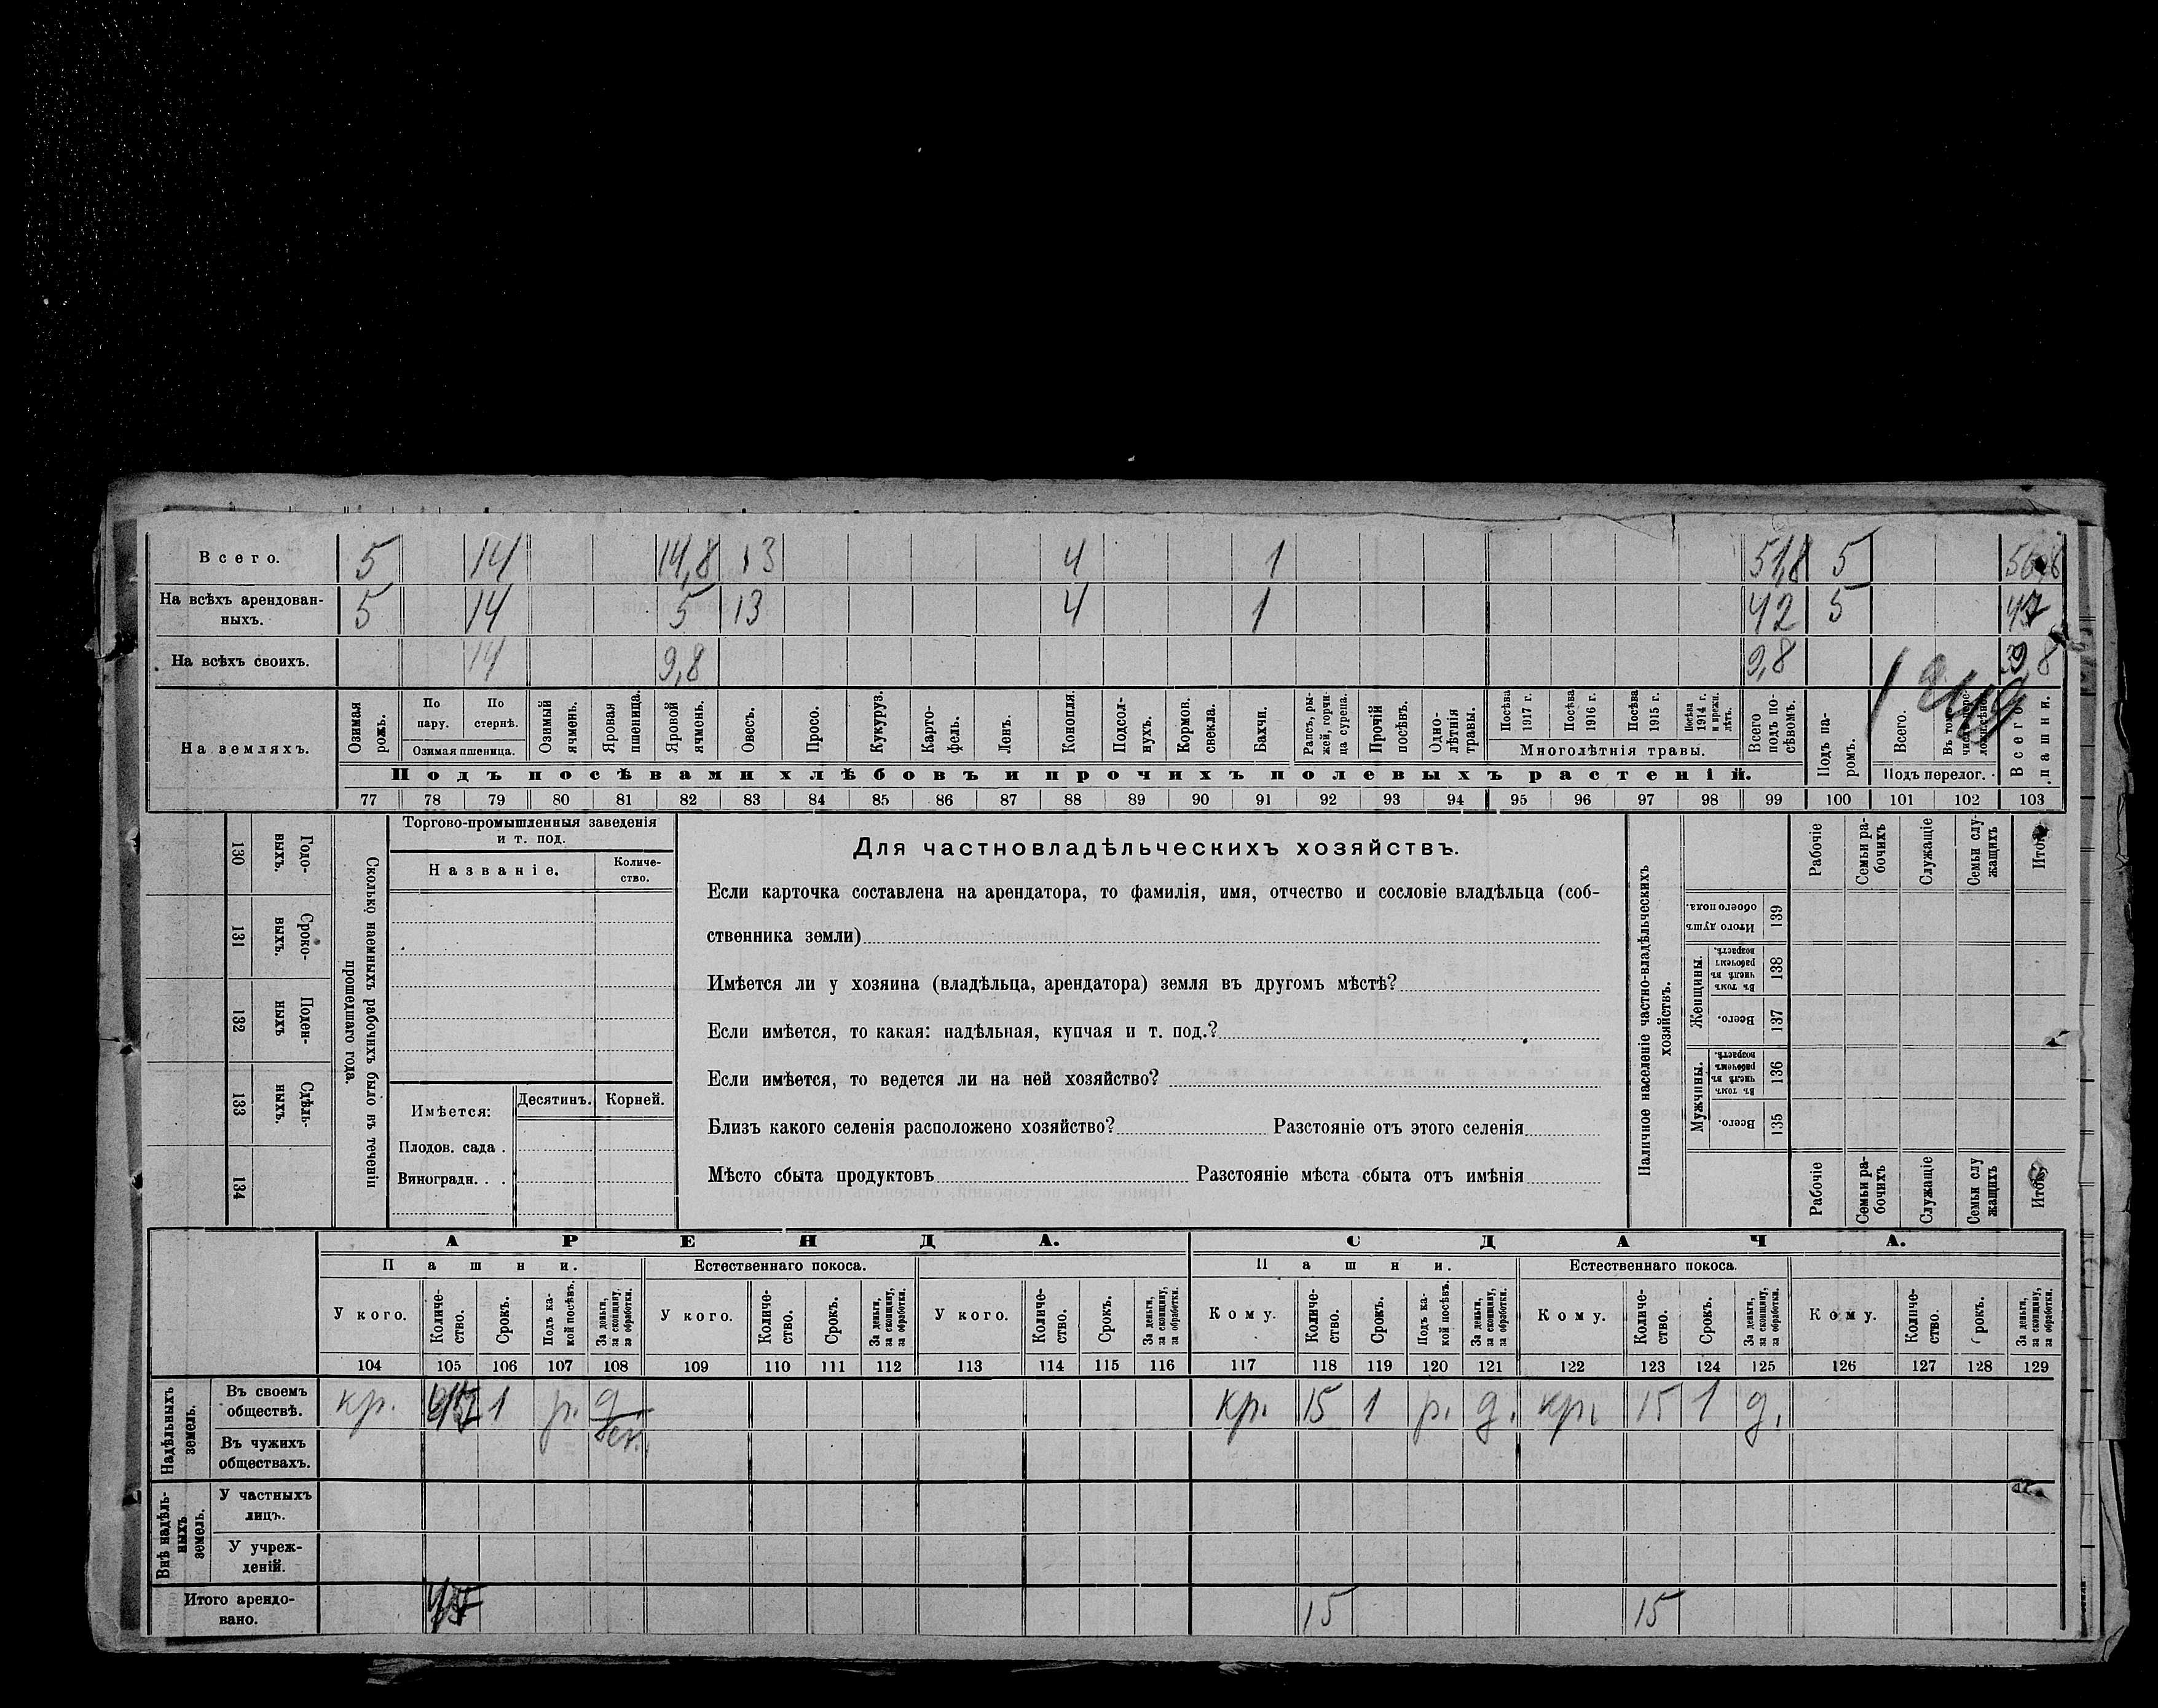 Всего. 5 14 14,8 13 4 1 51,8 5
На всѣхъ арендован-
ныхъ. 5 14 5 13 4 1 42 5 47
На всѣхъ своихъ. 14 9,8 9,8
На земляхъ.
Озимая рожь.
По пару.
По стернѣ.
Озимая пшеница.
Озимый ячмень.
Яровая пшеница.
Яровой ячмень.
Овесъ.
Просо.
Кукуруз.
Карто-
фель.
Ленъ.
Конопля.
Подсол-
нухъ.
Кормов.
свекла.
Бахчи.
Рапсъ, ры-
жей, горчи-
ца сурепа.
Прочій
посѣвъ.
Одно-
лѣтнія
травы.
Посѣва
1917 г.
Посѣва
1916 г.
Посѣва
1915 г.
Посѣва
1914 г.
и прежн.
лѣтъ.
Многолѣтнія травы.
Всего
подъ по-
сѣвомъ.
Подъ па-
ромъ.
Всего.
Подъ перелог.
Всего
пашни.
Подъ посѣвами хлѣбовъ и прочихъ полевыхъ растеній.
77 78 79 80 81 82 83 84 85 86 87 88 89 90 91 92 93 94 95 96 97 98 99 100 101 102 103
130 Годо-
выхъ.
131 Сроко-
выхъ.
132 Поден-
ныхъ
133 Сдѣль-
ныхъ.
134
Сколько наемныхъ рабочихъ было въ теченіи
прошедшаго года.
Торгово-промышленныя заведенія
и т. под.
Названіе.
Количе-
ство.
Имѣется: Десятинъ. Корней.
Плодов. сада .
Виноградн. . .
Для частновладѣльческихъ хозяйствъ.
Если карточка составлена на арендатора, то фамилія, имя, отчество и сословіе владѣльца (соб-
ственника земли)
Имѣется ли у хозяина (владѣльца, арендатора) земля въ другомъ мѣстѣ?
Если имѣется, то какая: надѣльная, купчая и т. под.?
Если имѣется, то ведется ли на ней хозяйство?
Близъ какого селенія расположено хозяйство? Разстояніе отъ этого селенія
Мѣсто сбыта продуктовъ Разстояніе мѣста сбыта отъ имѣнія
Наличное населеніе частно-владѣльческихъ
хозяйствъ.
Рабочіе
Семьи ра-
бочихъ
Служащіе
Семьи слу-
жащихъ
Итого
Итого душъ
обоего пола. 139
Женщины.
Въ томъ
числѣ въ
рабочемъ
возрастѣ. 138
Всего. 137
Мужчины.
Въ томъ
числѣ въ
рабочемъ
возрастѣ. 136
Всего. 135
Рабочіе
Семьи ра-
бочихъ
Служащіе
Семьи слу
жащихъ
Итого
АРЕНДА. СДАЧА.
Пашни. Естественнаго покоса. Пашни. Естественнаго покоса.
У кого. Количе-
ство. Срокъ. Подъ ка-
кой посѣвъ. За деньги,
за скопщину,
за обработки. У кого. Количе-
ство. Срокъ. За деньги,
за скопщину,
за обработки. У кого. Количе-
ство. Срокъ. За деньги,
за скопщину,
за обработки. Кому. Количе-
ство. Срокъ. Подъ ка-
кой посѣвъ. За деньги,
за скопщину,
за обработки. Кому. Количе-
ство. Срокъ. За деньги,
за скопщину,
за обработки. Кому. Количе-
ство. рокъ. За деньги,
за скопщину,
за обработки.
104 105 106 107 108 109 110 111 112 113 114 115 116 117 118 119 120 121 122 123 124 125 126 127 128 129
Надѣльныхъ
земель.
Въ своемъ
обществѣ. кр. 1 р. д. кр. 15 1 р. д. кр. 15 1 д.
Въ чужихъ
обществахъ.
Внѣ надѣль-
ныхъ
земель.
У частныхъ
лицъ.
У учреж-
деній.
Итого арендо-
вано. 15 15